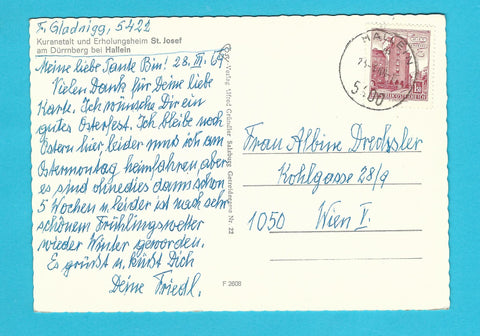 F. Gladnigg, 5422
Kuranstalt und Erholungsheim St. Josef
am Dürrnberg bei Hallein
Meine liebe Tante Bini! 28. III. 69
Vielen Dank für Deine liebe
Karte. Ich wünsche Dir ein
gutes Osterfest. Ich bleibe noch
Ostern hier leider muß ich am
Ostermontag heimfahren, aber
es sind ohnedies dann schon
5 Wochen u. leider ist nach sehr
schönem Frühlingswetter
wieder Winter geworden.
Es grüßt u. küßt Dich
Deine Friedl.
Verlag Alfred Gründler Salzburg Getreidegasse Nr. 22
F 2608
HALLEIN
5400
REPUBLIK ÖSTERREICH
Frau Albine Drechsler
Kohlgasse 28/9
1050 Wien V.